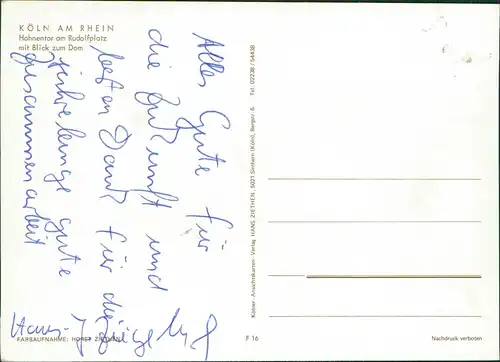 KÖLN AM RHEIN
Hahnentor am Rudolfplatz
mit Blick zum Dom
Alles Gute für
die Zukunft und
besten Dank für die
jahrelange gute
Zusammenarbeit
Hans-
FARBAUFNAHME: HORST ZIETHEN
Kölner Ansichtskarten-Verlag HANS ZIETHEN, 5021 Sinthern (Köln), Bergstr. 6 Tel: 02238 / 54438
F 16
Nachdruck verboten